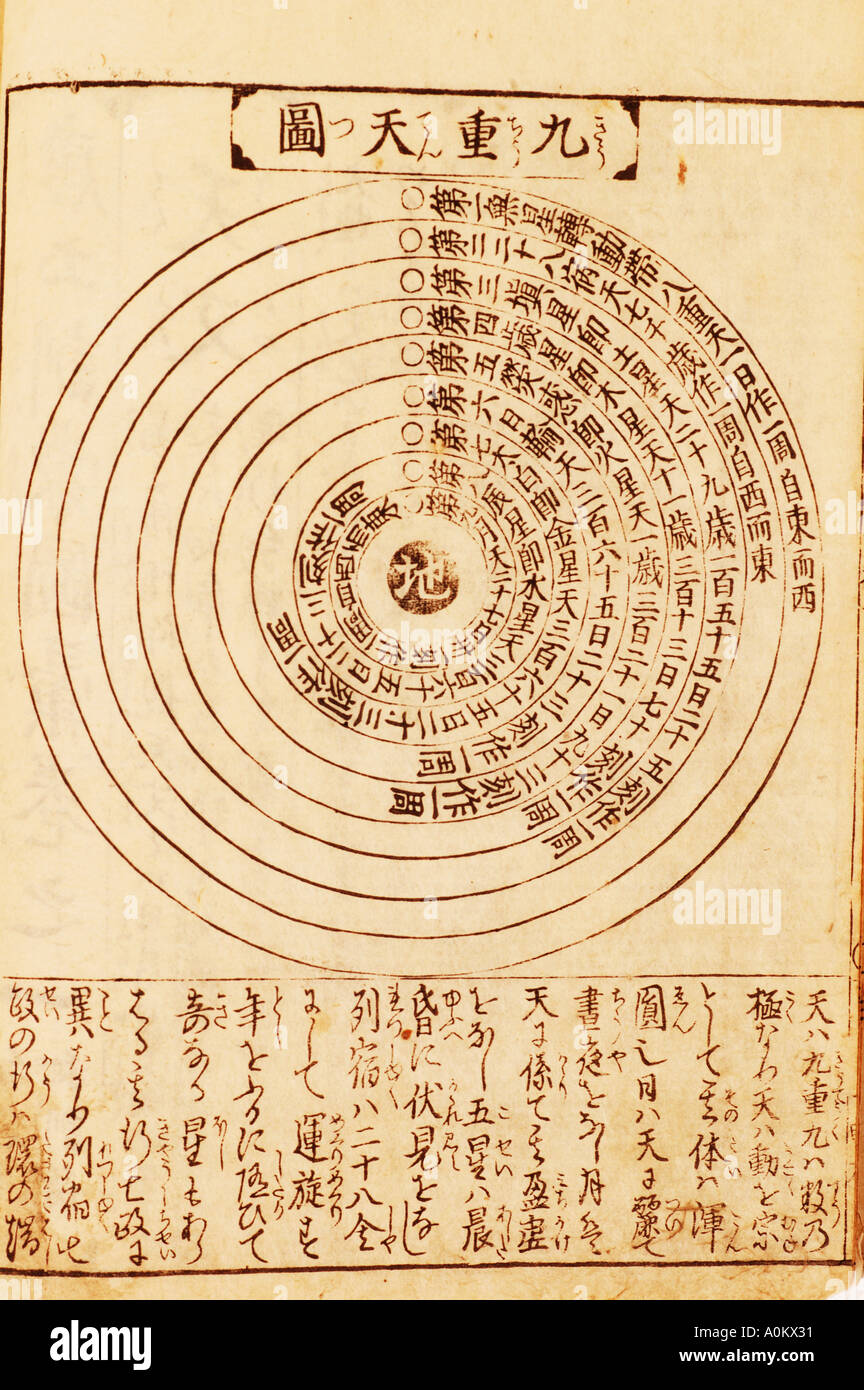 九重天圖
第一無星轉動帶八重天一日作一周自東而西
第二二十八宿天七千歳作一周自西而東
第三塡星即土星天二十九歳一百五十五日二十五刻作一周
第四歳星即木星天十一歳三百十三日七十刻作一周
第五熒惑即火星天一歳三百二十一日九十三刻作一周
第六日輪天三百六十五日二十三刻作一周
第七太白即金星天三百六十五日二十三刻作一周
第八辰星即水星天三百六十五日二十三刻作一周
第九月天二十七日
地
天ハ九重九ハ数乃
極なわ天ハ動を宗
として其体ハ渾
圓也日ハ天に麗て
晝夜をなし月は
天に係て其盈虚
をなし五星ハ晨
昏に伏見をなし
列宿ハ二十八
して運旋す
年を
星もあり
異なり列宿
政の行ハ環の端
alamy
alamy
Image ID: A0KX31
www.alamy.com